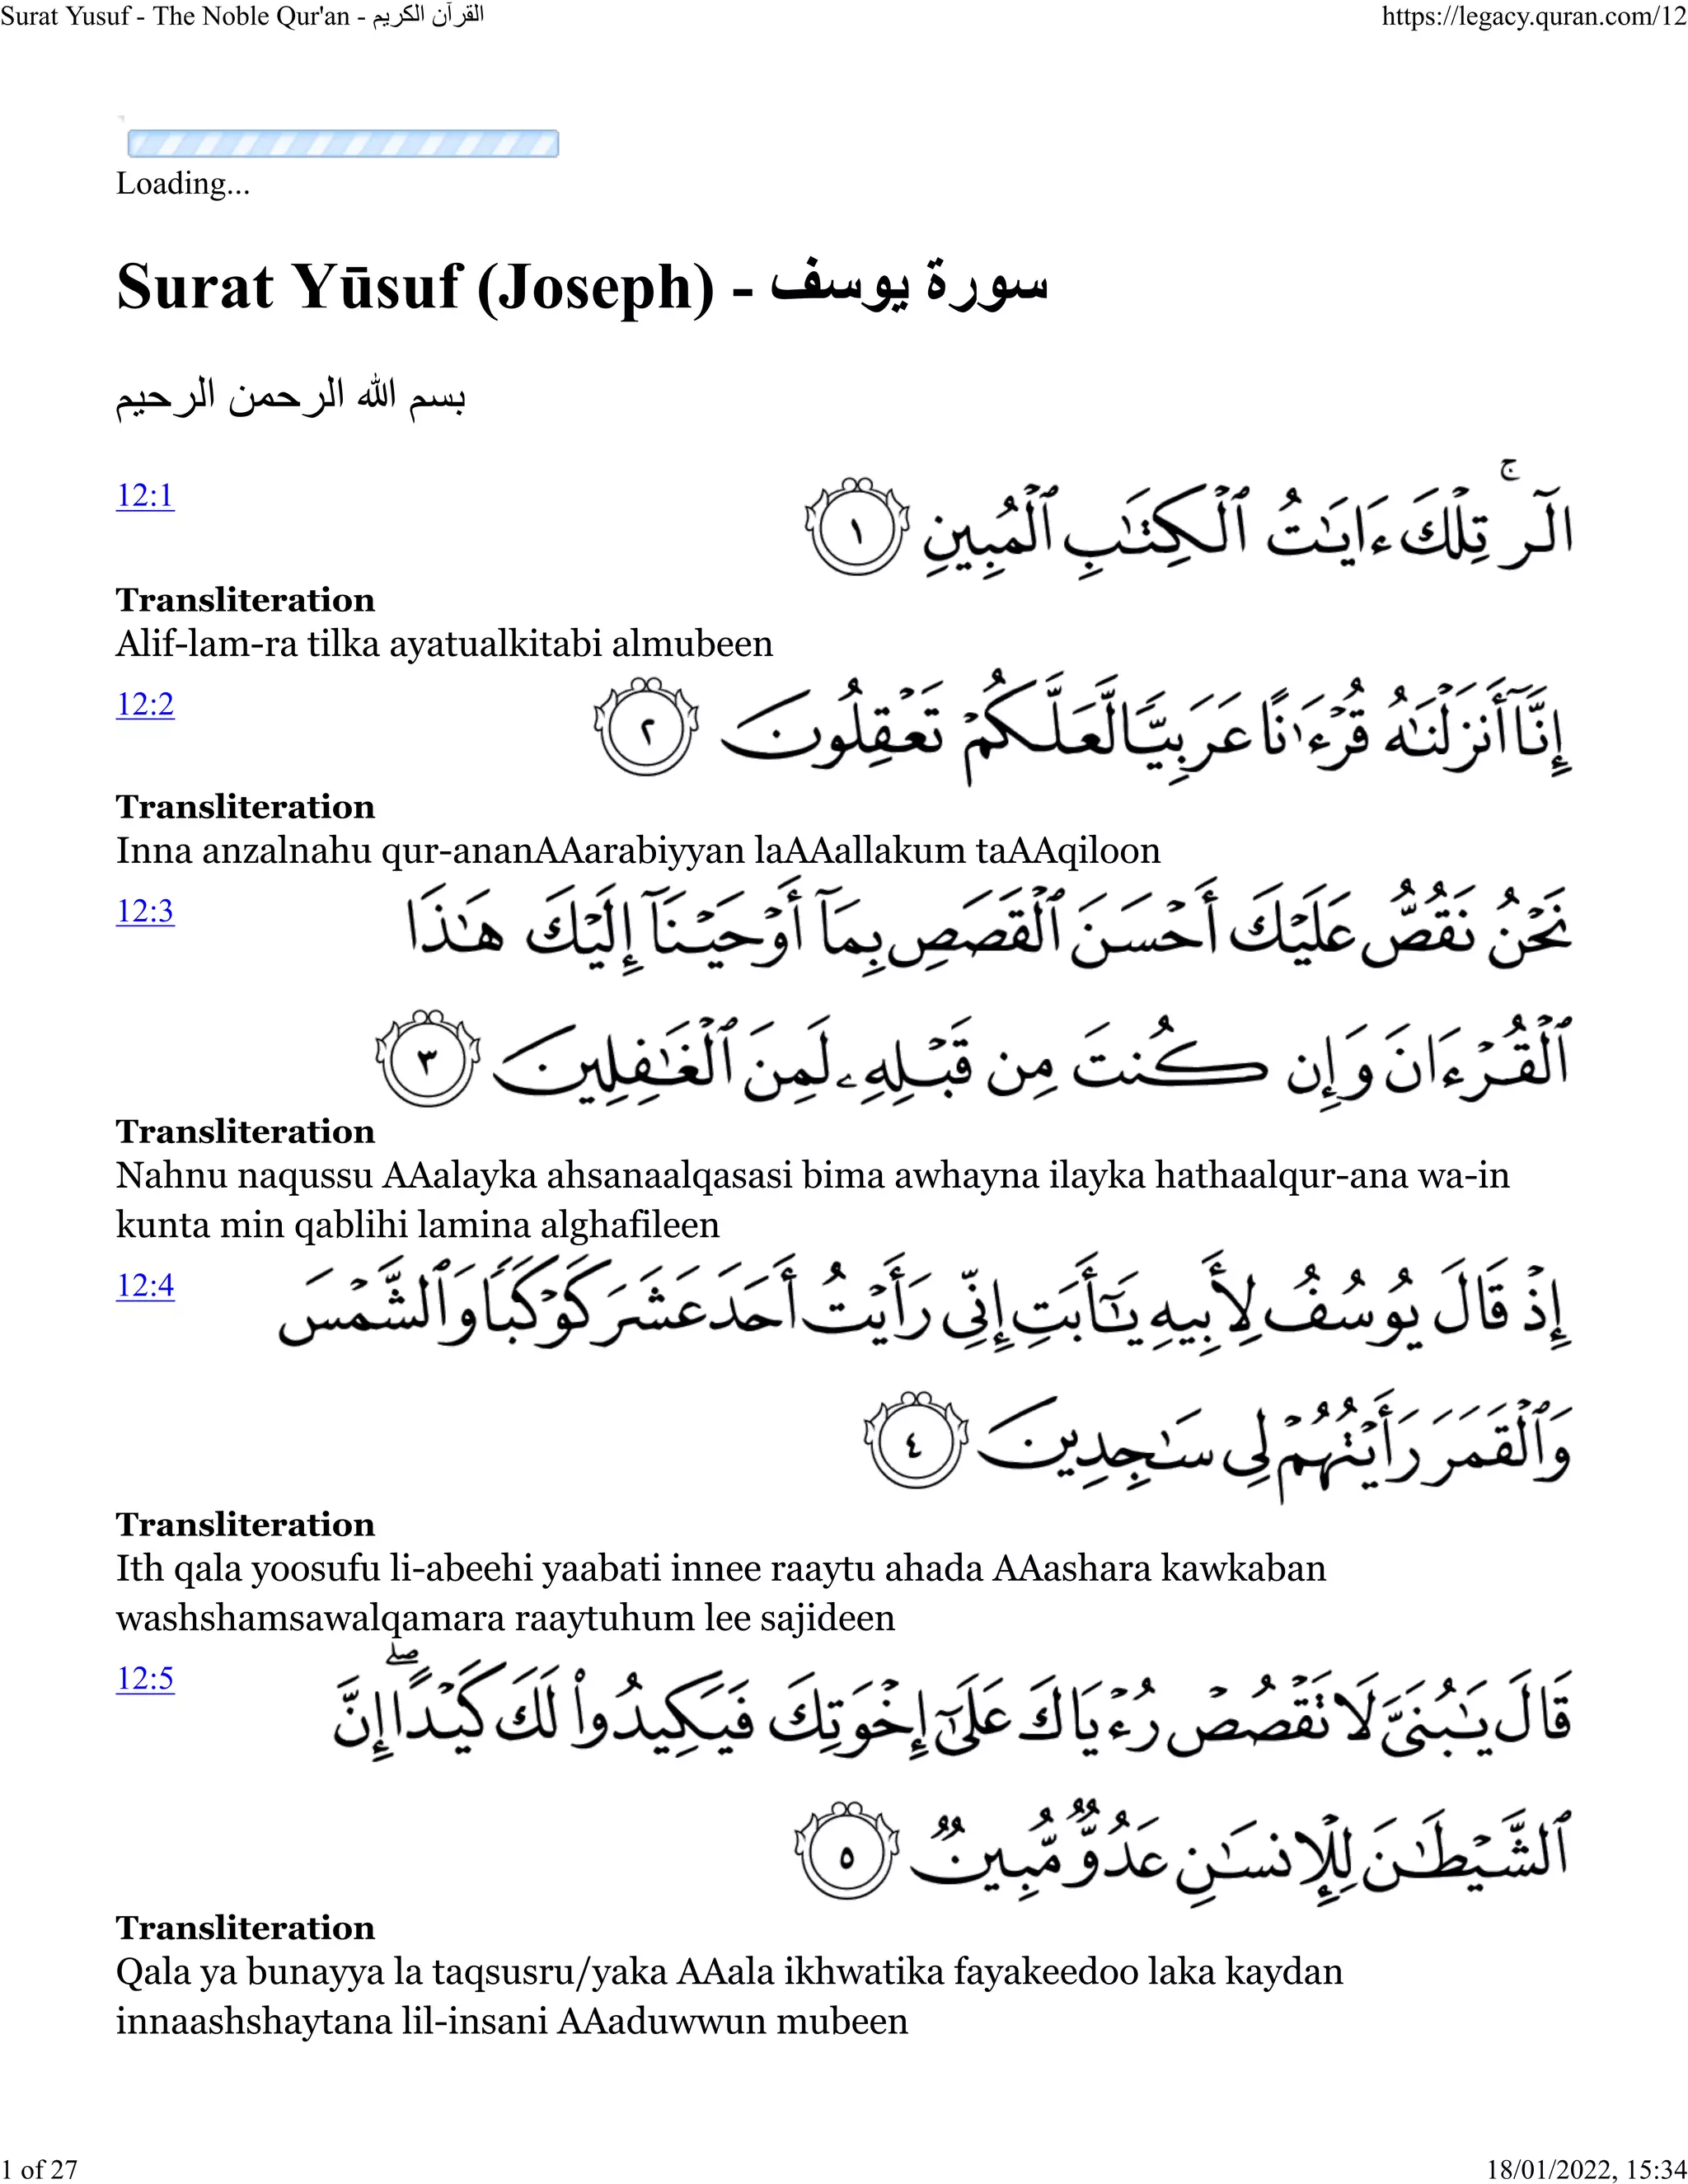 Surat Yusuf - The Noble Qur'an - القرآن الكريم
https://legacy.quran.com/12
Loading...
Surat Yūsuf (Joseph) - سورة يوسف
بسم الله الرحمن الرحيم
12:1
الٓرۚ تِلْكَ ءَايَٰتُ ٱلْكِتَٰبِ ٱلْمُبِينِ ١
Transliteration
Alif-lam-ra tilka ayatualkitabi almubeen
12:2
إِنَّآ أَنزَلْنَٰهُ قُرْءَٰنًا عَرَبِيًّا لَّعَلَّكُمْ تَعْقِلُونَ ٢
Transliteration
Inna anzalnahu qur-ananAAarabiyyan laAAallakum taAAqiloon
12:3
نَحْنُ نَقُصُّ عَلَيْكَ أَحْسَنَ ٱلْقَصَصِ بِمَآ أَوْحَيْنَآ إِلَيْكَ هَٰذَا
ٱلْقُرْءَانَ وَإِن كُنتَ مِن قَبْلِهِۦ لَمِنَ ٱلْغَٰفِلِينَ ٣
Transliteration
Nahnu naqussu AAalayka ahsanaalqasasi bima awhayna ilayka hathaalqur-ana wa-in
kunta min qablihi lamina alghafileen
12:4
إِذْ قَالَ يُوسُفُ لِأَبِيهِ يَٰٓأَبَتِ إِنِّى رَأَيْتُ أَحَدَ عَشَرَ كَوْكَبًا وَٱلشَّمْسَ
وَٱلْقَمَرَ رَأَيْتُهُمْ لِى سَٰجِدِينَ ٤
Transliteration
Ith qala yoosufu li-abeehi yaabati innee raaytu ahada AAashara kawkaban
washshamsawalqamara raaytuhum lee sajideen
12:5
قَالَ يَٰبُنَىَّ لَا تَقْصُصْ رُءْيَاكَ عَلَىٰٓ إِخْوَتِكَ فَيَكِيدُوا۟ لَكَ كَيْدًا ۖ إِنَّ
ٱلشَّيْطَٰنَ لِلْإِنسَٰنِ عَدُوٌّ مُّبِينٌ ٥
Transliteration
Qala ya bunayya la taqsusru/yaka AAala ikhwatika fayakeedoo laka kaydan
innaashshaytana lil-insani AAaduwwun mubeen
1 of 27
18/01/2022, 15:34